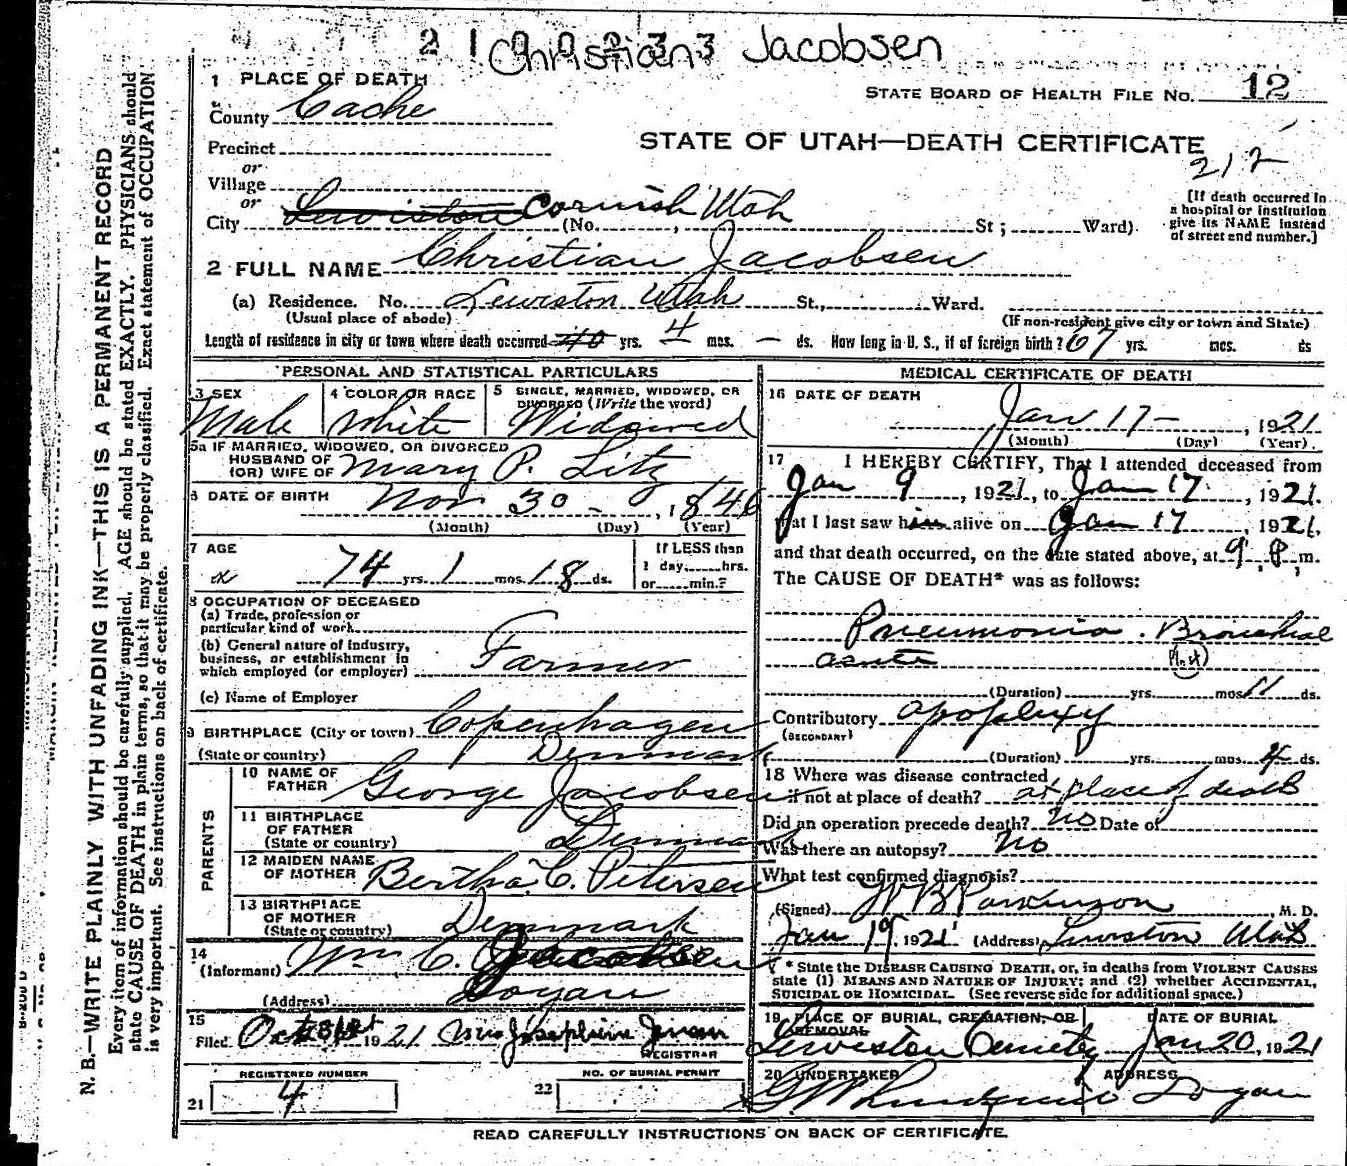 2 1 0 0 2 3 3
Christian Jacobsen
1 PLACE OF DEATH
STATE BOARD OF HEALTH FILE NO. 12
County Cache
STATE OF UTAH—DEATH CERTIFICATE
212
Precinct
or
Village
or
City Lewiston Cornish Utah (No. , St ; Ward)
[If death occurred in
a hospital or institution
give its NAME instead
of street and number.]
2 FULL NAME Christian Jacobsen
(a) Residence. No. Lewiston Utah St., Ward.
(Usual place of abode)
(If non-resident give city or town and State)
Length of residence in city or town where death occurred 40 yrs. 4 mos. — ds. How long in U. S., if of foreign birth? 67 yrs. mos. ds
PERSONAL AND STATISTICAL PARTICULARS
3 SEX
Male
4 COLOR OR RACE
white
5 SINGLE, MARRIED, WIDOWED, OR
DIVORCED (Write the word)
Widowed
5a IF MARRIED, WIDOWED, OR DIVORCED
HUSBAND OF
(OR) WIFE OF Mary P. Litz
6 DATE OF BIRTH Nov 30 - , 1846
(Month) (Day) (Year)
7 AGE
74 yrs. 1 mos. 18 ds.
If LESS than
1 day, hrs.
or min.?
8 OCCUPATION OF DECEASED
(a) Trade, profession or
particular kind of work
(b) General nature of industry,
business, or establishment in
which employed (or employer) Farmer
(c) Name of Employer
9 BIRTHPLACE (City or town) Copenhagen
(State or country) Denmark
PARENTS
10 NAME OF
FATHER George Jacobsen
11 BIRTHPLACE
OF FATHER
(State or country) Denmark
12 MAIDEN NAME
OF MOTHER Bertha C. Petersen
13 BIRTHPLACE
OF MOTHER
(State or country) Denmark
14
(Informant) Wm C. Jacobsen
(Address) Logan
15
Filed Oct 31st 1921 Mrs Josephine Jensen
REGISTRAR
REGISTERED NUMBER
21 4
NO. OF BURIAL PERMIT
22
MEDICAL CERTIFICATE OF DEATH
16 DATE OF DEATH
Jan 17- , 1921
(Month) (Day) (Year)
17 I HEREBY CERTIFY, That I attended deceased from
Jan 9 , 1921, to Jan 17 , 1921.
that I last saw him alive on Jan 17 , 1921,
and that death occurred, on the date stated above, at 9 P m.
The CAUSE OF DEATH* was as follows:
Pneumonia. Bronchial
acute
(Duration) yrs. mos. 11 ds.
Contributory apoplexy
(SECONDARY)
(Duration) yrs. mos. 4 ds.
18 Where was disease contracted
if not at place of death? at place of death
Did an operation precede death? No Date of
Was there an autopsy? No
What test confirmed diagnosis?
(Signed) W B Parkinson M. D.
Jan 19, 1921 (Address) Lewiston Utah
* State the DISEASE CAUSING DEATH, or, in deaths from VIOLENT CAUSES
state (1) MEANS AND NATURE OF INJURY; and (2) whether ACCIDENTAL,
SUICIDAL OR HOMICIDAL. (See reverse side for additional space.)
19 PLACE OF BURIAL, CREMATION, OR
REMOVAL
Lewiston Cemetery
DATE OF BURIAL
Jan 20, 1921
20 UNDERTAKER
ADDRESS
Logan
READ CAREFULLY INSTRUCTIONS ON BACK OF CERTIFICATE.
N. B.—WRITE PLAINLY WITH UNFADING INK—THIS IS A PERMANENT RECORD
Every item of information should be carefully supplied. AGE should be stated EXACTLY. PHYSICIANS should
state CAUSE OF DEATH in plain terms, so that it may be properly classified. Exact statement of OCCUPATION
is very important. See instructions on back of certificate.